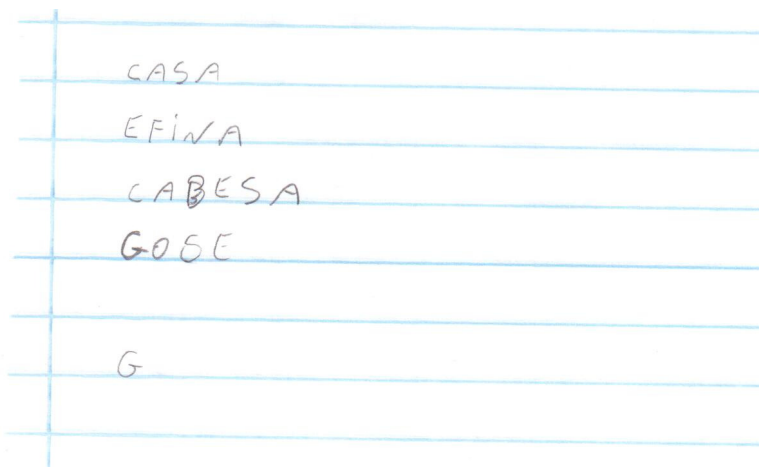 CASA
EFiNA
CABESA
GOSE
G